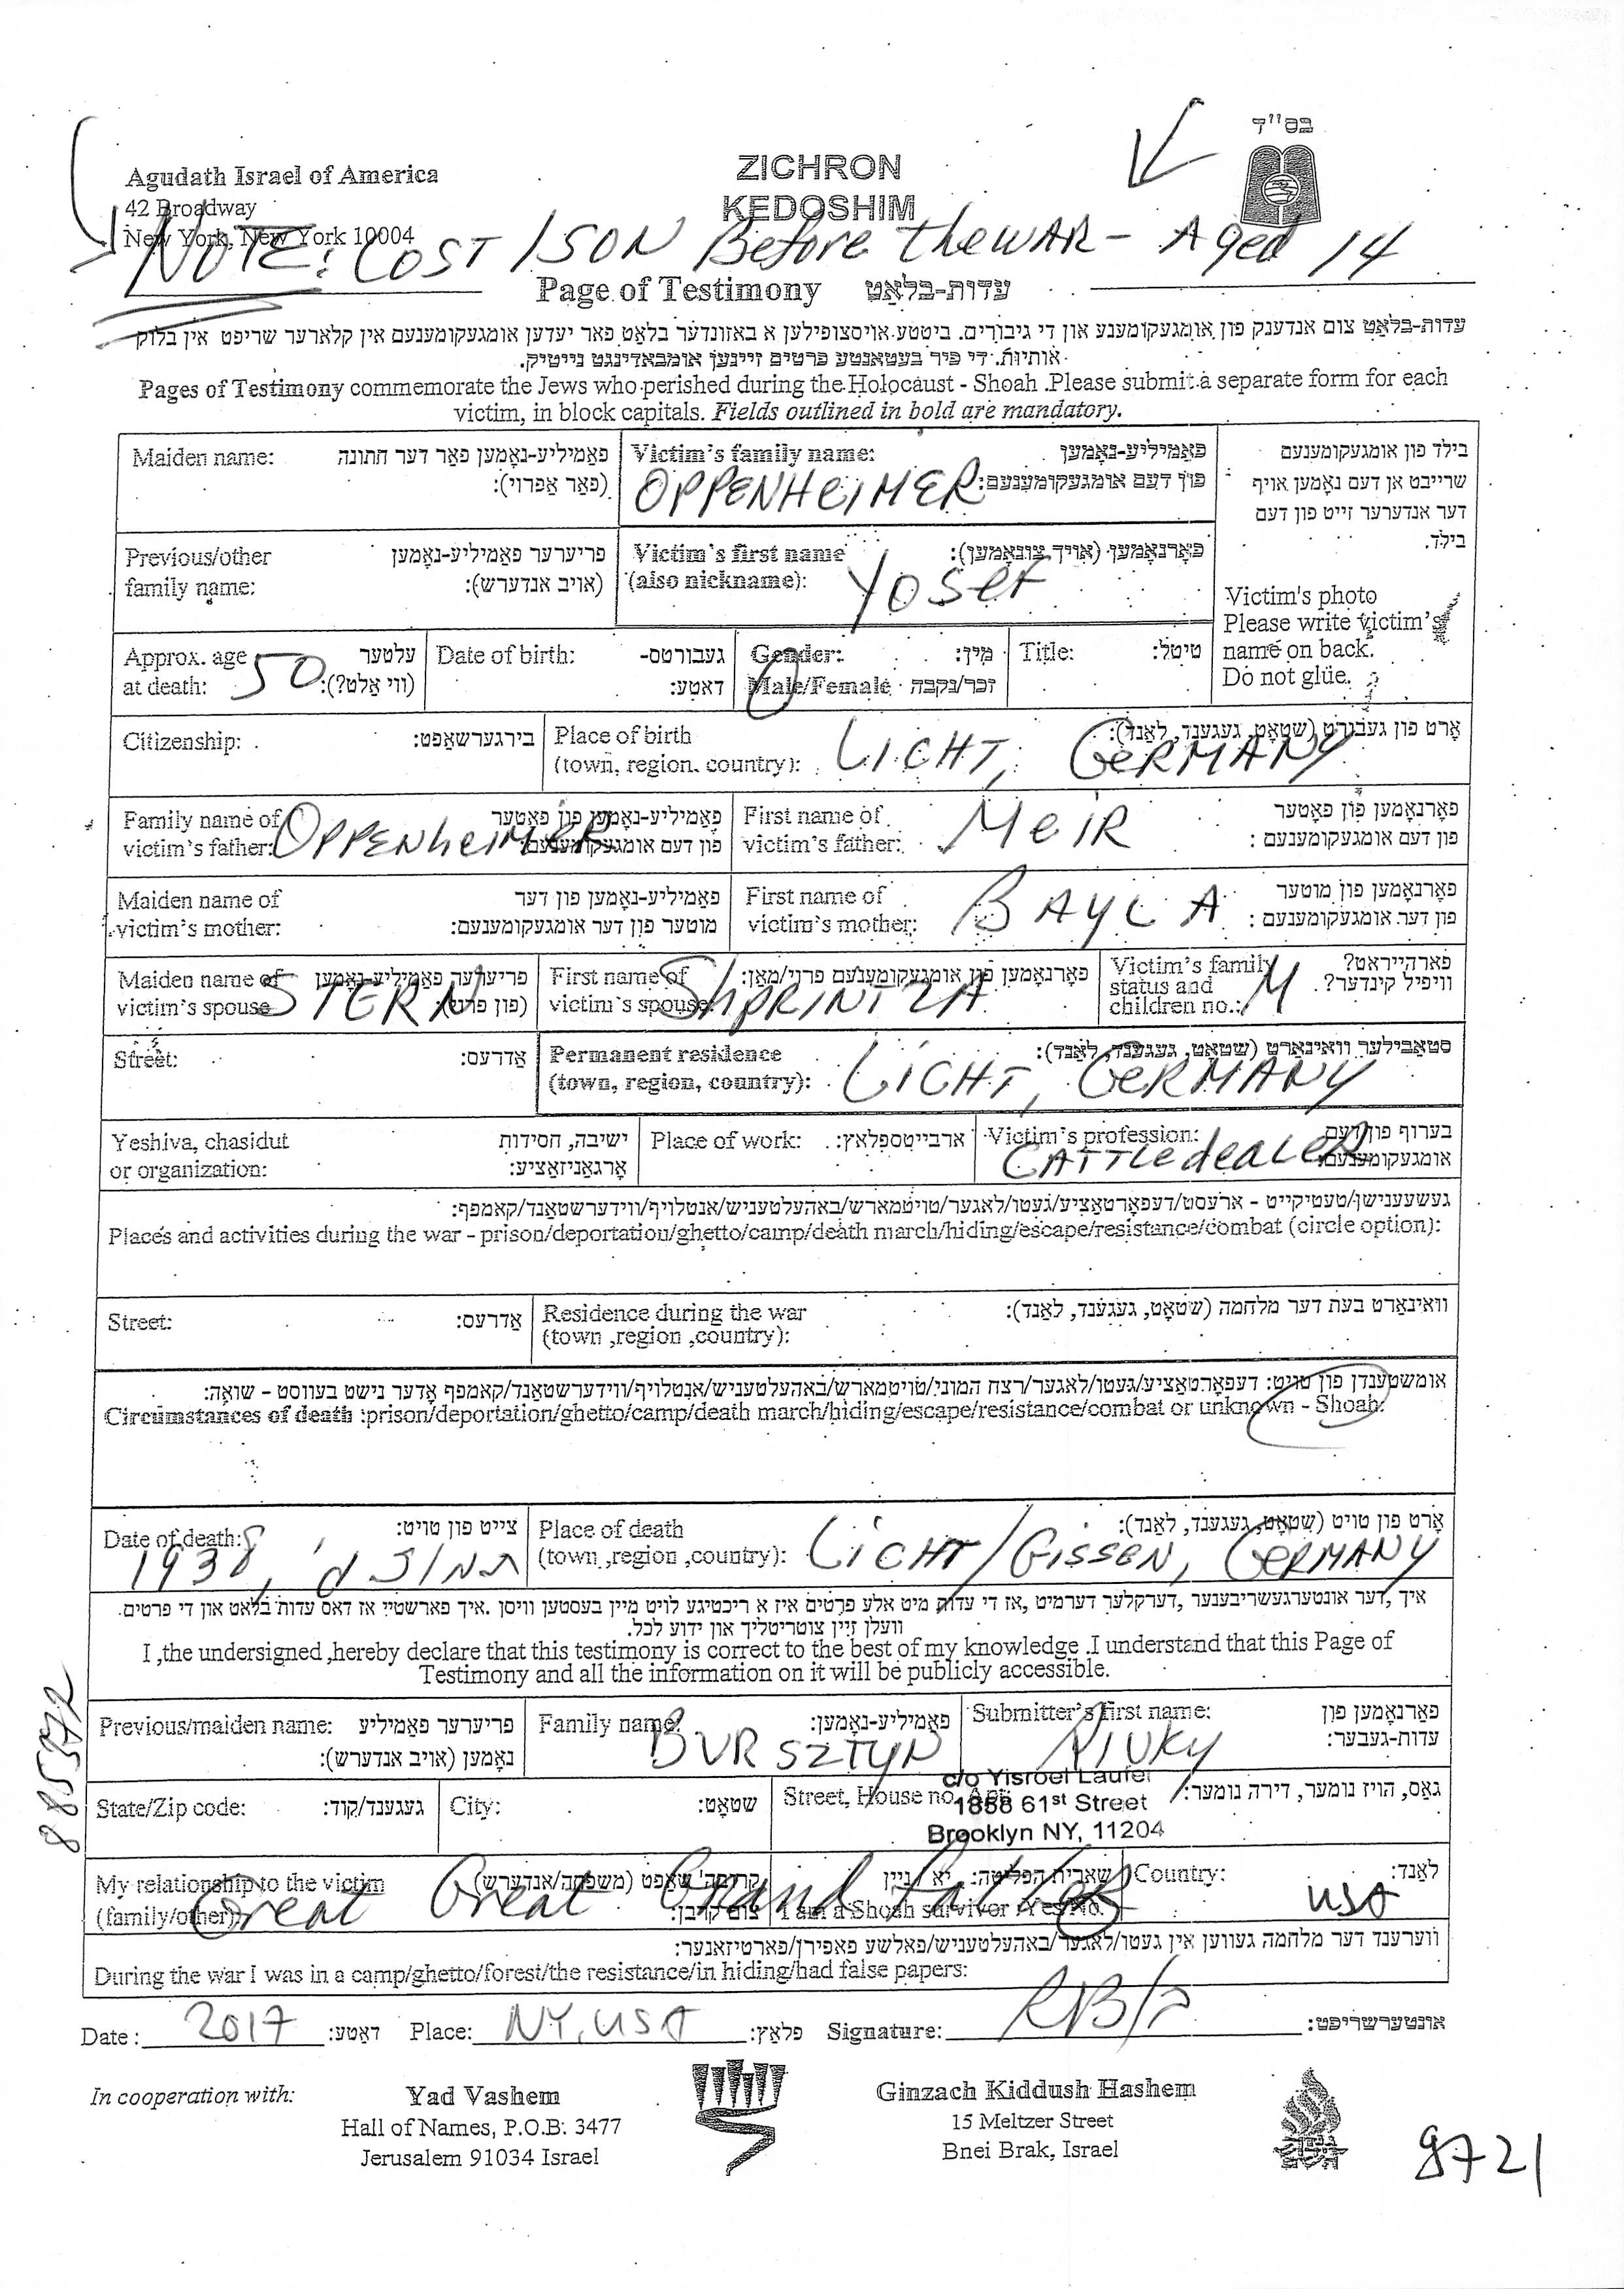 בס"ד
Agudath Israel of America
42 Broadway
New York, New York 10004
ZICHRON
KEDOSHIM
NOTE: LOST 1 SON Before the WAR - Aged 14
Page of Testimony עדות-בלאַט
עדות-בלאַט צום אנדענק פון אומגעקומענע און די גיבורים. ביטע אויסצופילען א באזונדער בלאט פאר יעדען אומגעקומענעם אין קלארער שריפט אין בלוק
אותיות. די פיר בעטאנטע פרטים זיינען אומבאדינגט נייטיק.
Pages of Testimony commemorate the Jews who perished during the Holocaust - Shoah .Please submit a separate form for each
victim, in block capitals. Fields outlined in bold are mandatory.
Maiden name: פאַמיליע-נאָמען פאַר דער חתונה
(פאַר אַפרוי):
Victim's family name: פאַמיליע-נאָמען
פון דעם אומגעקומענעם:
OPPENHEIMER
בילד פון אומגעקומענעם
שרייבט אן דעם נאָמען אויף
דער אנדערער זייט פון דעם
בילד.
Previous/other פריערער פאַמיליע-נאָמען
family name: (אויב אנדערש):
Victim's first name פאָרנאָמען (אויך צונאָמען):
(also nickname): Yosef
Victim's photo
Please write victim's
name on back.
Do not glue.
Approx. age עלטער
at death: 50 (ווי אַלט?):
Date of birth: געבורטס-
דאַטע:
Gender: מין:
Male/Female זכר/נקבה
Title: טיטל:
Citizenship: בירגערשאַפט:
Place of birth אָרט פון געבורט (שטאָט, געגענד, לאַנד):
(town, region. country): LICHT, GERMANY
Family name of פאַמיליע-נאָמען פון פאָטער
victim's father: פון דעם אומגעקומענעם:
OPPENHEIMER
First name of פאָרנאָמען פון פאָטער
victim's father: MEIR פון דעם אומגעקומענעם :
Maiden name of פאַמיליע-נאָמען פון דער
victim's mother: מוטער פון דער אומגעקומענעם:
First name of פאָרנאָמען פון מוטער
victim's mother: BAYLA פון דער אומגעקומענעם :
Maiden name of פריערער פאַמיליע-נאָמען
victim's spouse STERN (פון פרוי):
First name of פאָרנאָמען פון אומגעקומענעם פרוי/מאַן:
victim's spouse: SHPRINTZA
Victim's family פארהייראט?
status and וויפיל קינדער?
children no.: M
Street: אַדרעס:
Permanent residence סטאַבילער וואוינאָרט (שטאָט, געגענד, לאַנד):
(town, region, country): LICHT, GERMANY
Yeshiva, chasidut ישיבה, חסידות
or organization: אָרגאַניזאַציע:
Place of work: ארבייטספלאץ:
Victim's profession: בערוף פון דעם
אומגעקומענעם:
CATTLE dEALER
געשעענישן/טעטיקייט - ארעסט/דעפּאָרטאַציע/געטו/לאגער/טויטמארש/באהעלטעניש/אנטלויף/ווידערשטאַנד/קאמפף:
Places and activities during the war - prison/deportation/ghetto/camp/death march/hiding/escape/resistance/combat (circle option):
Street: אַדרעס:
Residence during the war וואוינאָרט בעת דער מלחמה (שטאָט, געגענד, לאַנד):
(town ,region ,country):
אומשטענדן פון טויט: דעפּאָרטאַציע/געטו/לאגער/רצח המוני/טויטמארש/באהעלטעניש/אנטלויף/ווידערשטאַנד/קאמפף אָדער נישט בעוואוסט - שואה:
Circumstances of death :prison/deportation/ghetto/camp/death march/hiding/escape/resistance/combat or unknown - Shoah:
Date of death: צייט פון טויט:
1938,
Place of death אָרט פון טויט (שטאָט, געגענד, לאַנד):
(town ,region ,country): LICHT/GISSEN, GERMANY
איך, דער אונטערגעשריבענער, דערקלער דערמיט, אז די עדות מיט אלע פרטים איז א ריכטיגע לויט מיין בעסטען וויסן. איך פארשטיי אז דאס עדות בלאט און די פרטים
וועלן זיין צוטריטליך און ידוע לכל.
I ,the undersigned ,hereby declare that this testimony is correct to the best of my knowledge .I understand that this Page of
Testimony and all the information on it will be publicly accessible.
Previous/maiden name: פריערער פאַמיליע
נאָמען (אויב אנדערש):
Family name: פאַמיליע-נאָמען:
BURSZTYN
Submitter's first name: פאָרנאָמען פון
עדות-געבער:
RIVKY
State/Zip code: געגענד/קוד:
City: שטאָט:
Street, House no, Apt: גאַס, הויז נומער, דירה נומער:
c/o Yisroel Laufer
1858 61st Street
Brooklyn NY, 11204
My relationship to the victim קרובה'שאַפט (משפּחה/אנדערש)
(family/other): צום קרבן:
Great Great Grand father
שארית הפליטה: יא / ניין
I am a Shoah survivor :Yes/No.
Country: לאַנד:
USA
ווערענד דער מלחמה געווען אין געטו/לאגער/באהעלטעניש/פאלשע פאפירן/פארטיזאנער:
During the war I was in a camp/ghetto/forest/the resistance/in hiding/had false papers:
Date : 2017 דאַטע: Place: NY, USA פלאַץ: Signature: אונטערשריפט:
In cooperation with:
Yad Vashem
Hall of Names, P.O.B: 3477
Jerusalem 91034 Israel
Ginzach Kiddush Hashem
15 Meltzer Street
Bnei Brak, Israel
8721
885372